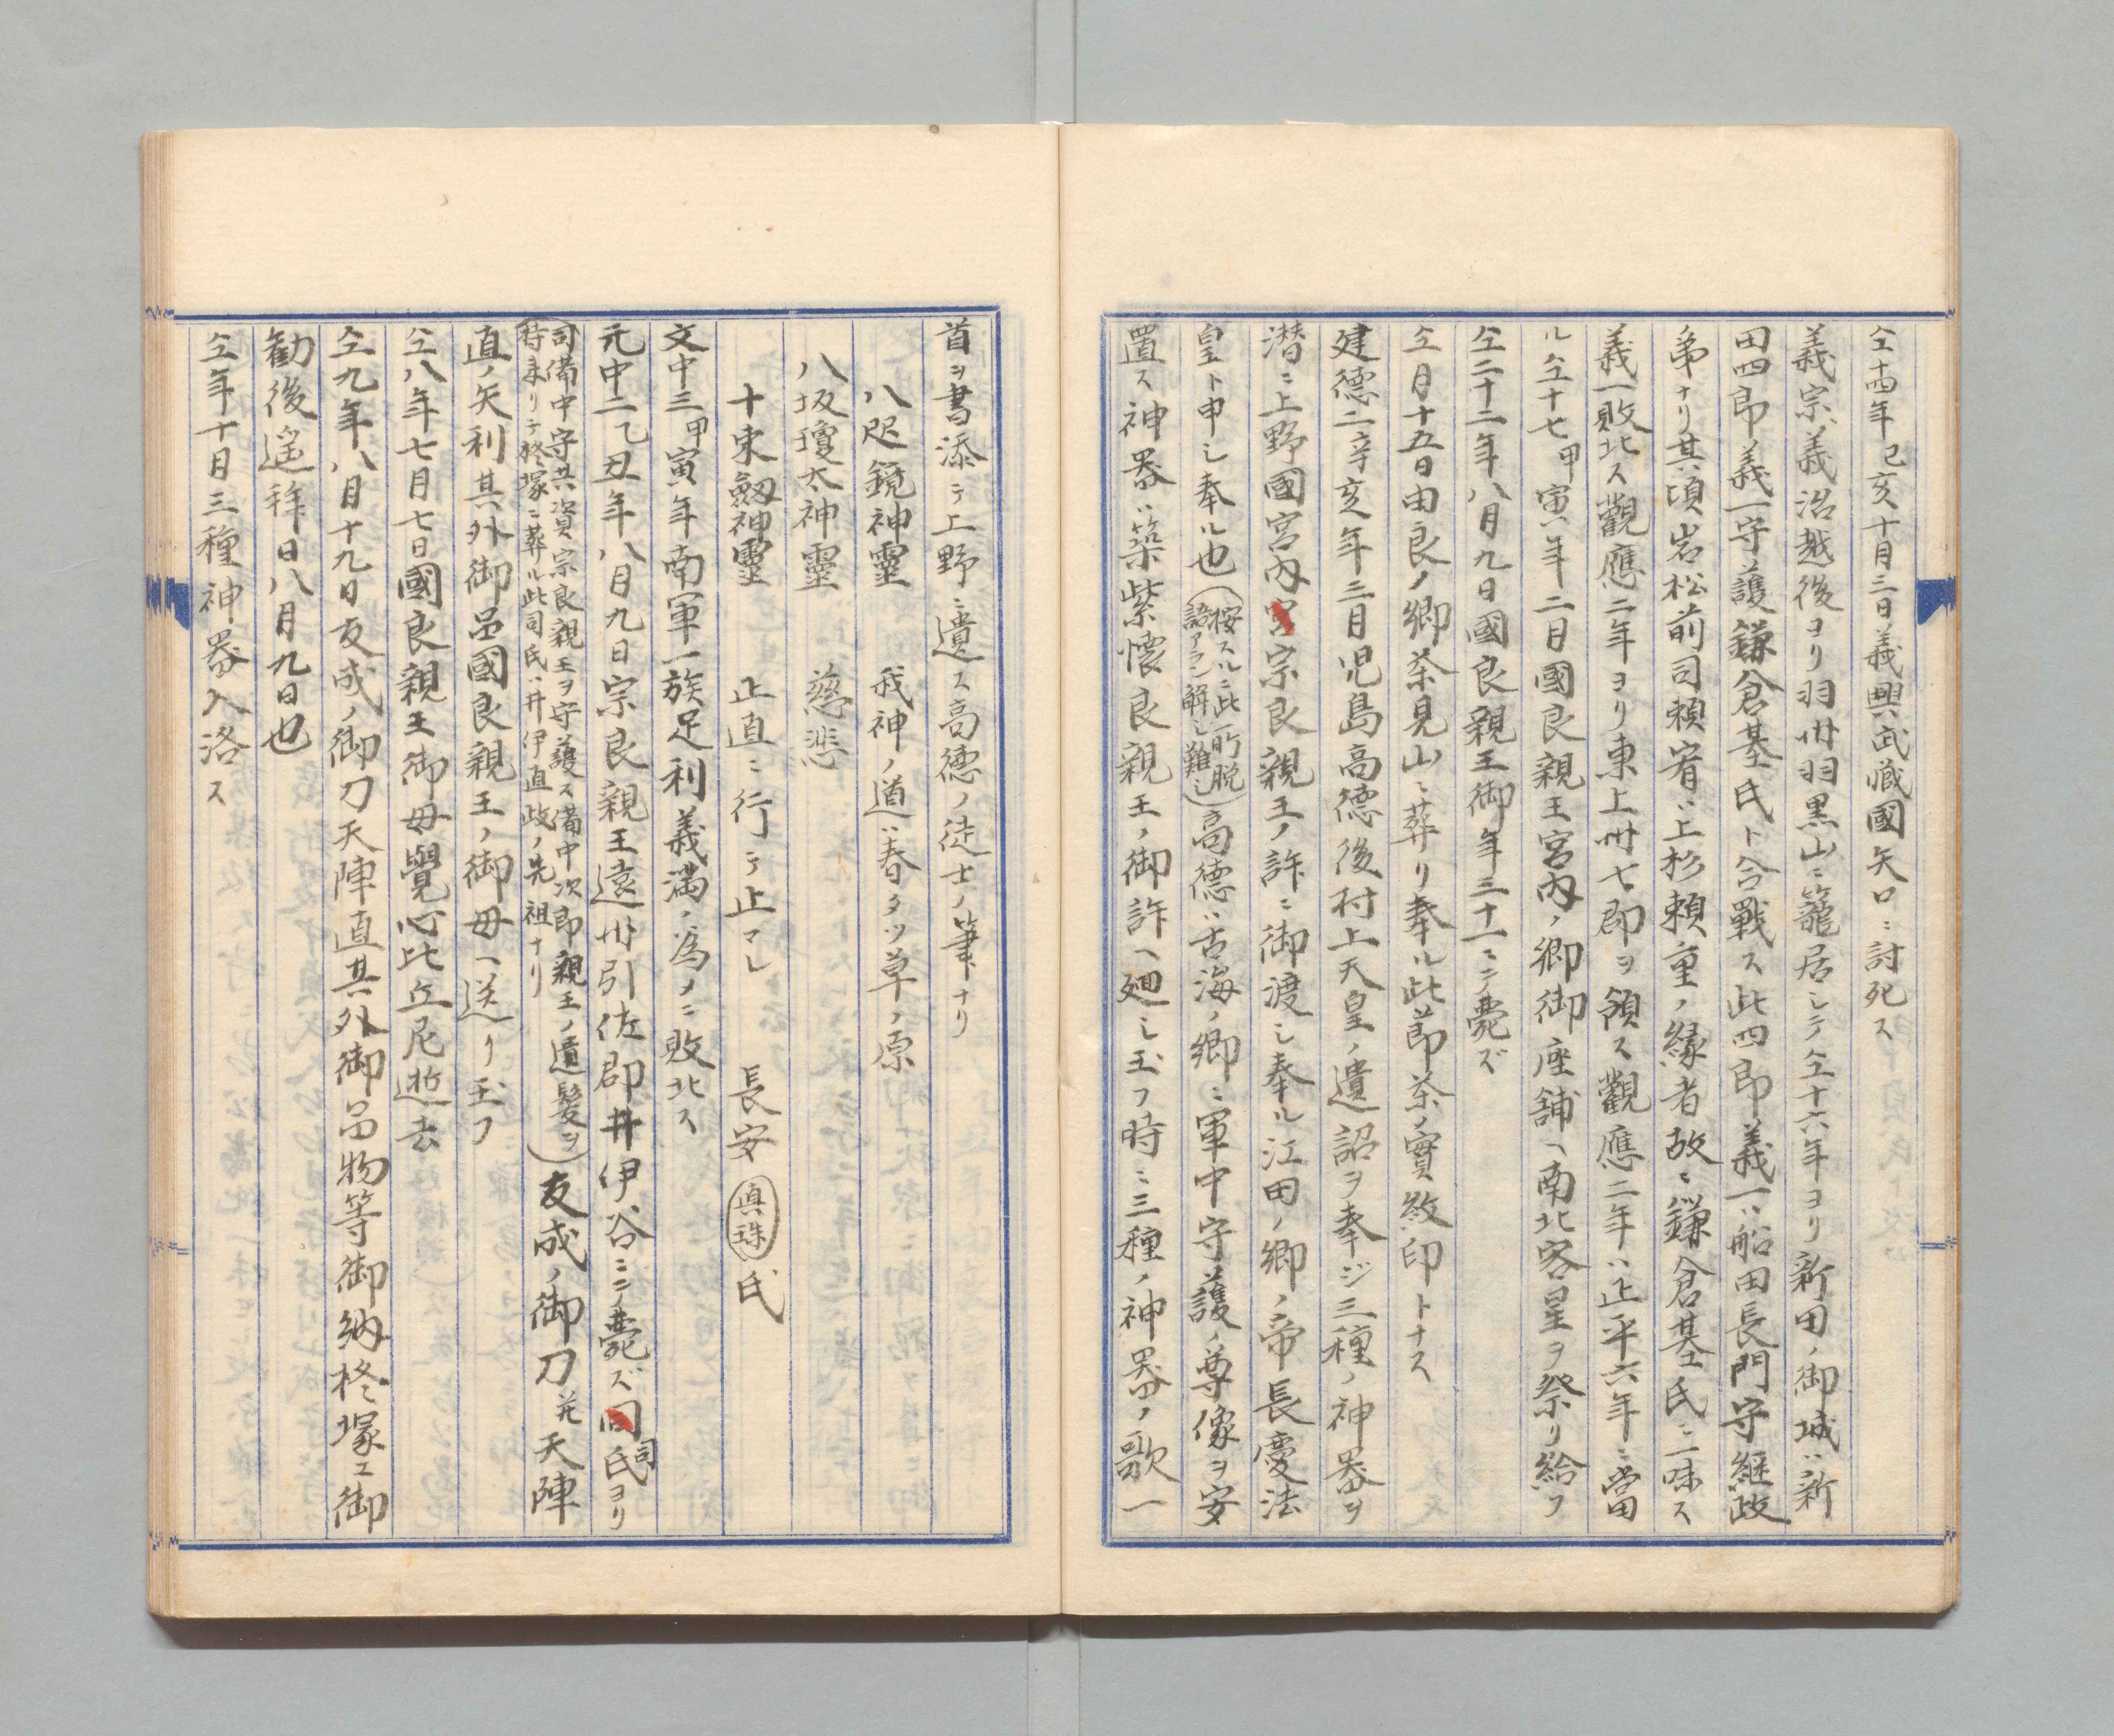 仝十四年己亥十月三日義興武蔵國矢口ニ討死ス
義宗義治越後ヨリ羽州羽黒山ニ籠居シテ仝十六年ヨリ新田ノ御城ハ新
田四郎義一守護鎌倉基氏ト合戰ス此四郎義一ハ船田長門守継政
弟ナリ其頃岩松前司頼宥ハ上杉頼重ノ縁者故ニ鎌倉基氏ニ一味ス
義一敗北ス觀應二年ヨリ東上州七郡ヲ領ス觀應二年ハ正平六年ニ當
ル仝十七甲寅年二月國良親王宮内ノ郷御座舗ヘ南北客星ヲ祭リ給フ
仝二十二年八月九日國良親王御年三十一ニテ薨ズ
仝月十五日由良ノ郷茶見山ニ葬リ奉ル此節茶ノ實紋印トナス
建德二辛亥年三月児島高德後村上天皇ノ遺詔ヲ奉ジ三種ノ神器ヲ
潜ニ上野國宮内宗良親王ノ許ニ御渡シ奉ル江田ノ郷ノ帝長慶法
皇ト申シ奉ル也(按スルニ此所脱語アラン解シ難シ)高德ハ古海ノ郷ニ軍中守護ノ尊像ヲ安
置ス神器ハ築紫懷良親王ノ御許ヘ廻シ玉フ時ニ三種ノ神器ノ歌一
首ヲ書添テ上野ニ遺ス高德ノ徒士ノ筆ナリ
八咫鏡神靈　我神ノ道ハ春タツ草ノ原
八坂瓊太神靈　慈悲
十束劔神靈　正直ニ行テ止マレ　長安真珠氏
文中三甲寅年南軍一族足利義満ノ為メニ敗北ス
元中二乙丑年八月九日宗良親王遠州引佐郡井伊谷ニテ薨ズ司氏ヨリ
(司備中守其資宗良親王ヲ守護ス備中次郎親王ノ遺髪ヲ持来リテ柊塚ニ葬ル此司氏ハ井伊直政ノ先祖ナリ)友成ノ御刀并天陣
直ノ矢利其外御品國良親王ノ御母ヘ送リ玉フ
仝八年七月七日國良親王御母覺心比丘尼逝去
仝九年八月十九日友成ノ御刀天陣直其外御品物等御納柊塚エ御
勧後遥拜日八月九日也
仝年十月三種神器入洛ス